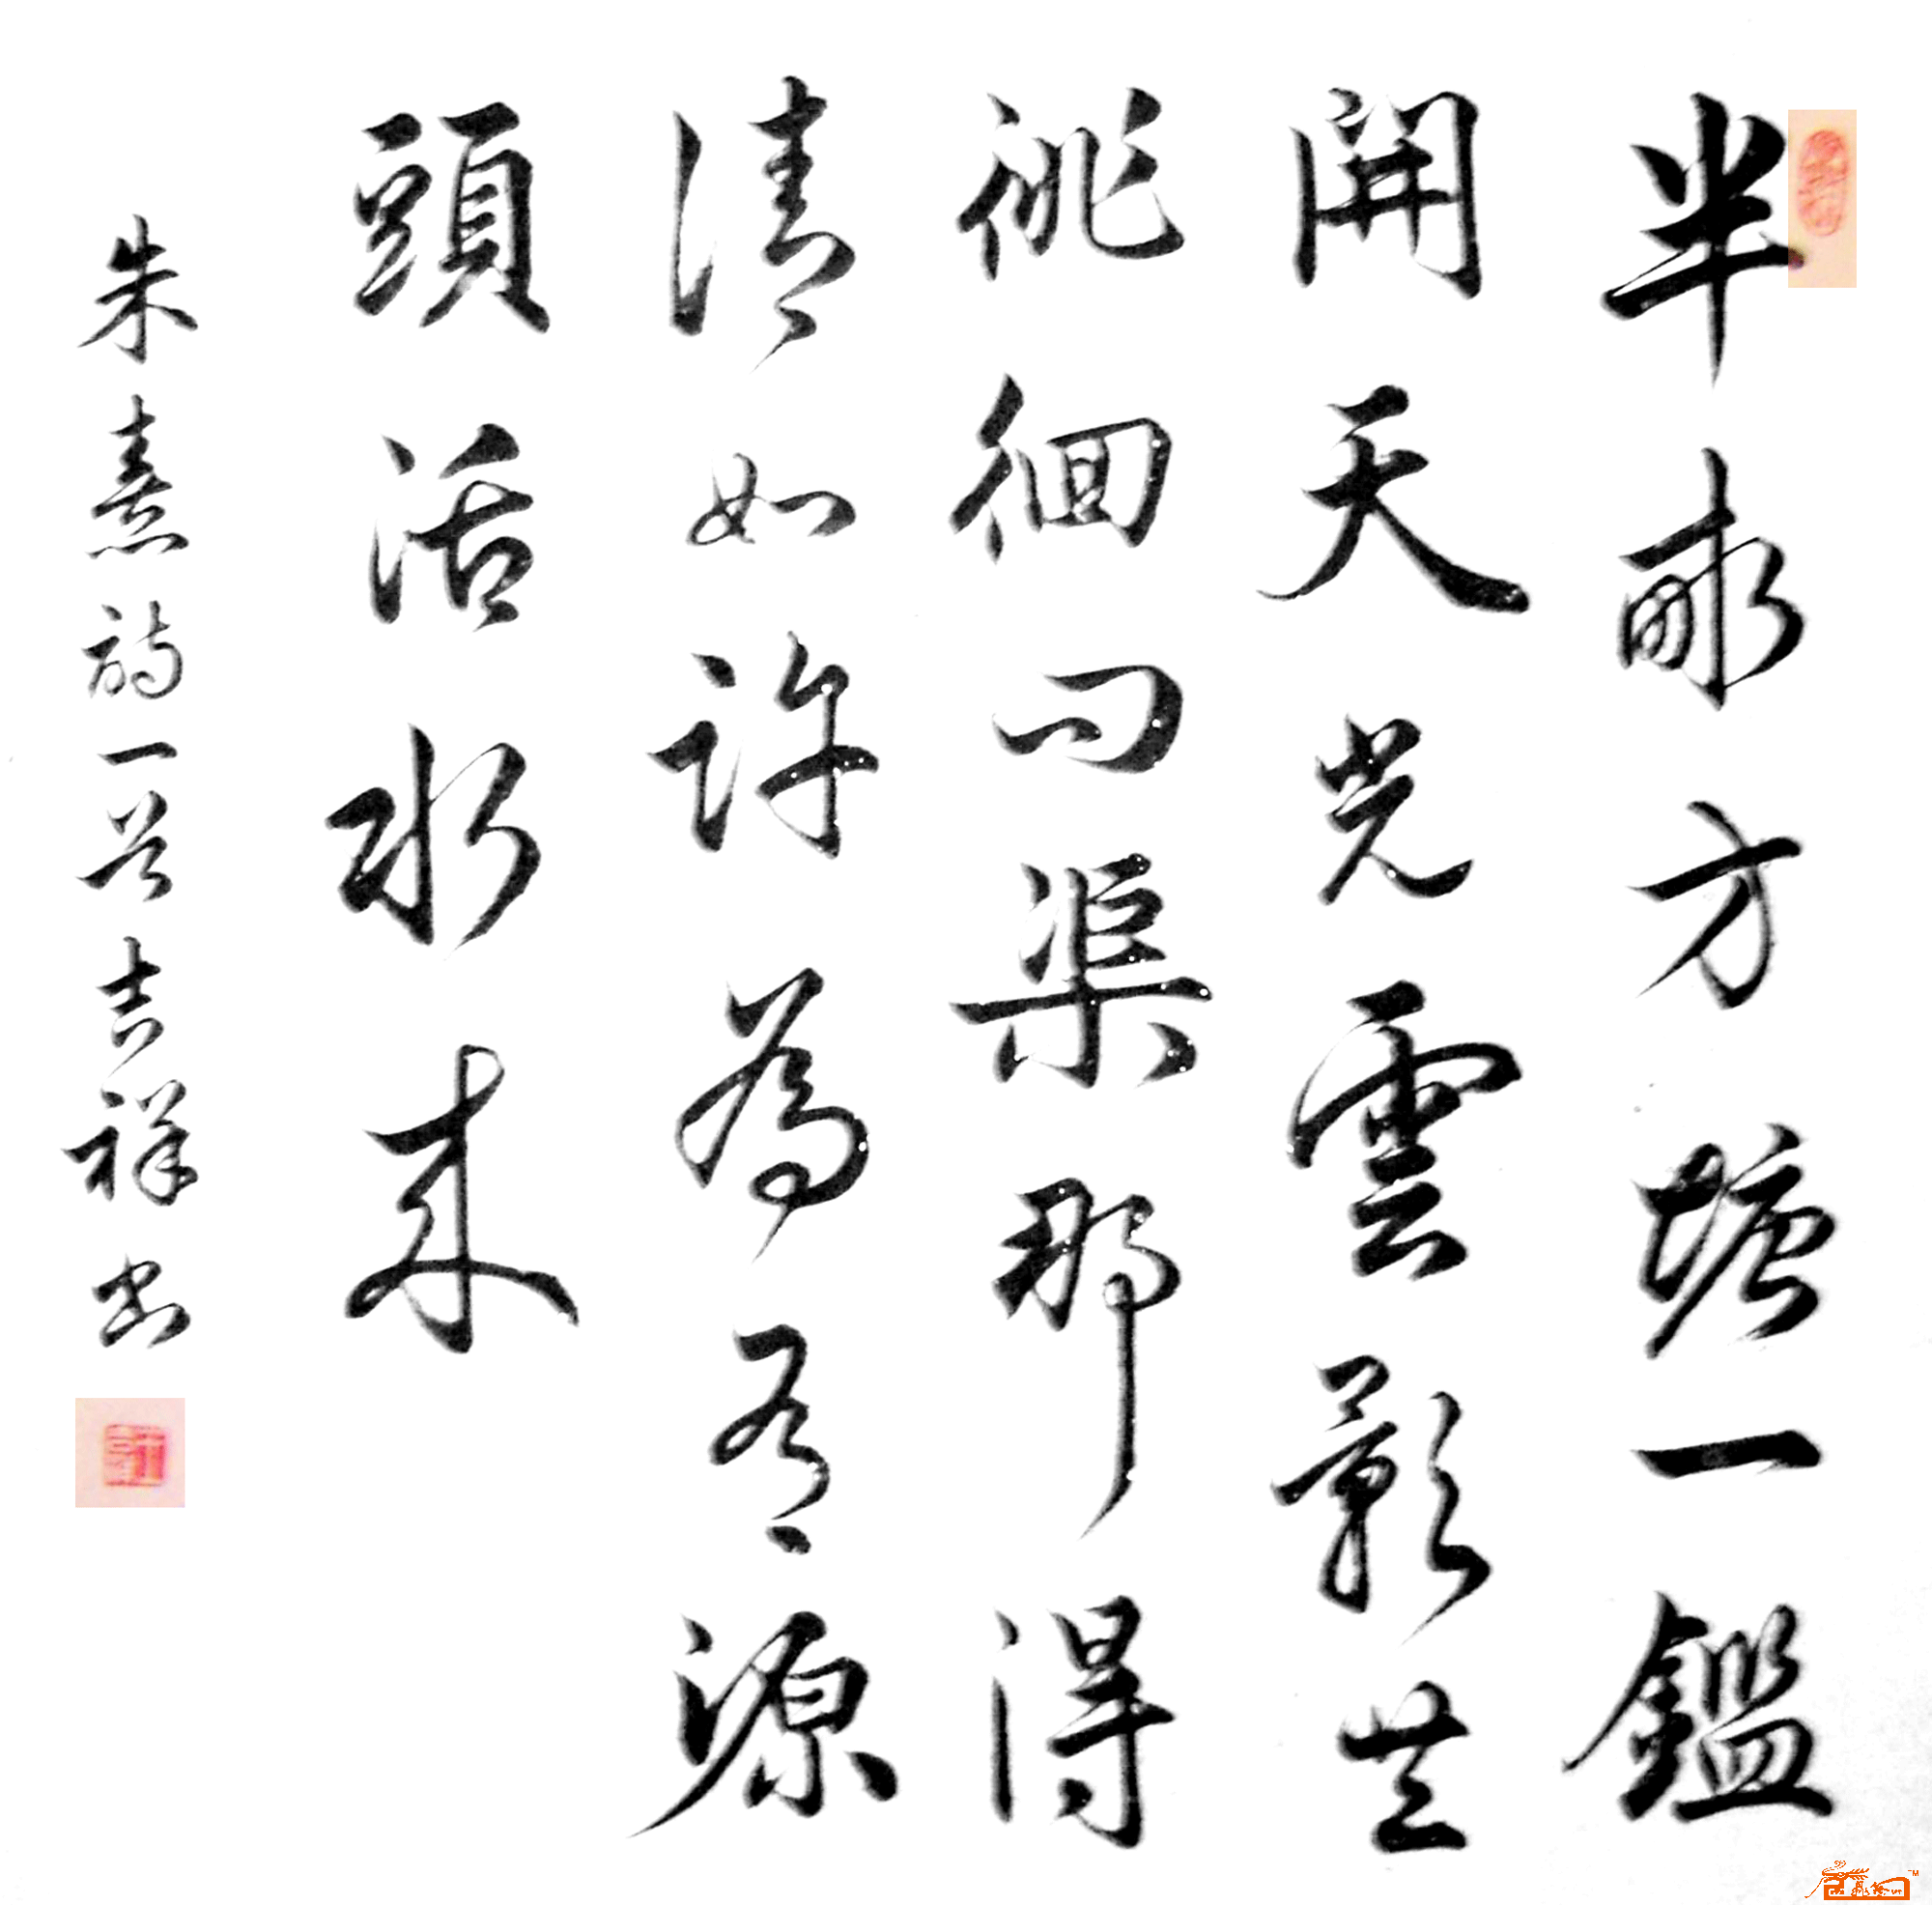 半畝方塘一鑑
開天光雲影共
徘徊問渠那得
清如許為有源
頭活水來
朱熹詩一首吉祥書